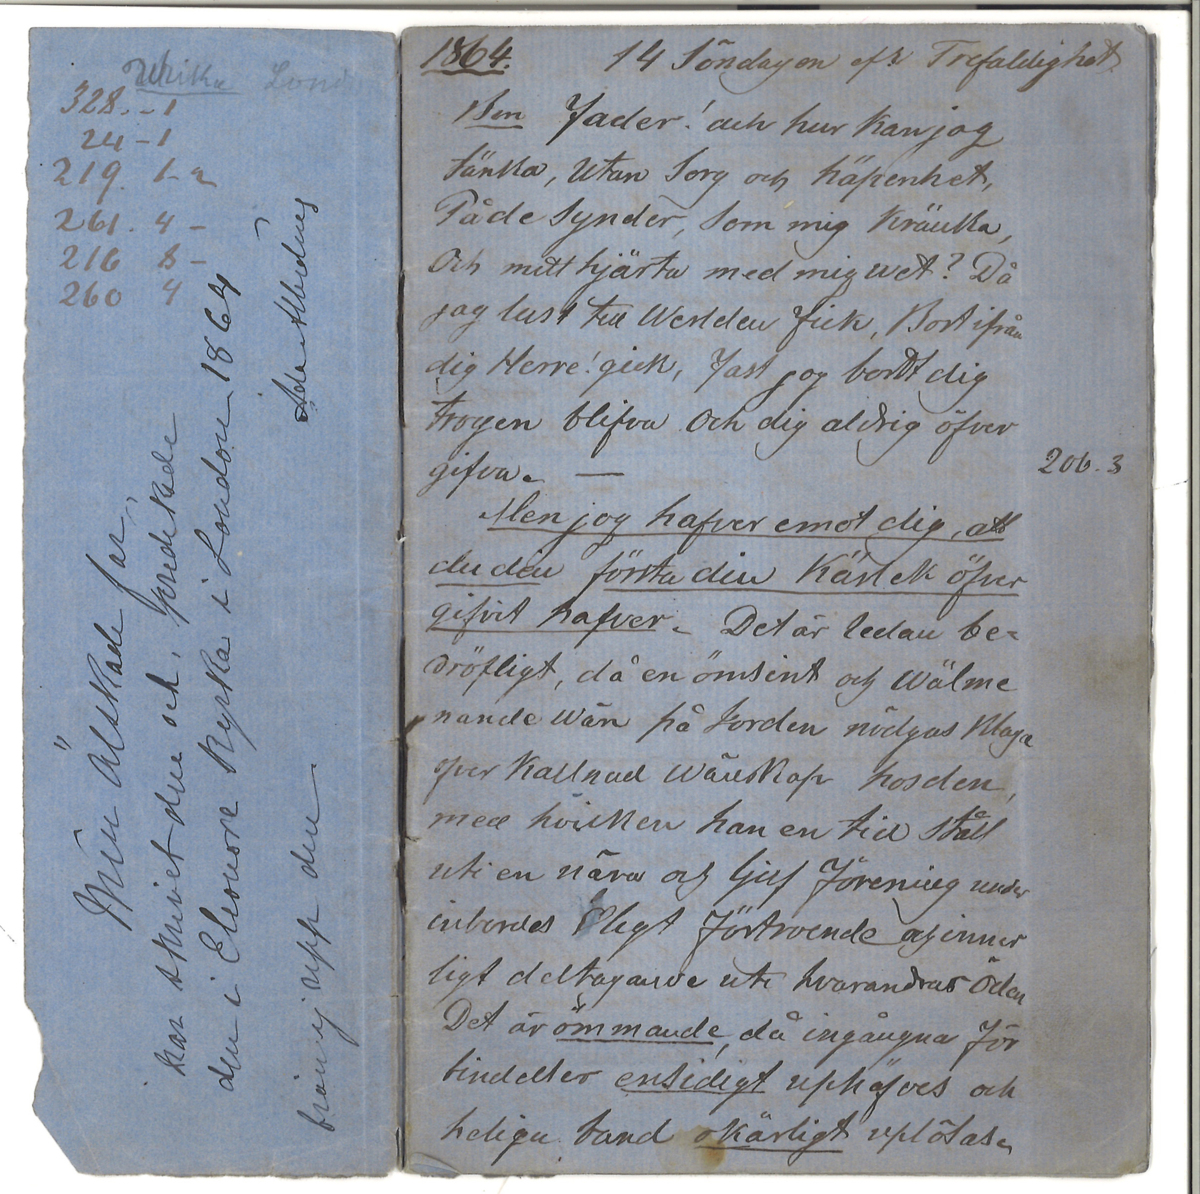 Ulrika Lond
328. - 1
24 - 1
219. 1 - 2
261. 4 -
216 8 -
260 4
Min Älskade far,
har skrivet den och, predikade
den i Eleonore kyrka i London 1864
bränn ej upp den
1864. 14 Söndagen eft Trefaldighet
Ben Fader! och hur kan jag
tänka, utan Sorg och häpenhet,
På de Synder, som mig kränka,
Och mitt hjärta med mig wet? Då
jag lust till Werlden fick, Bort ifrån
dig Herre! gick, Fast jag bordt dig
trogen blifva Och dig aldrig öfver
gifva. —
206. 3
Men jag hafver emot dig, att
du den första din Kärlek öfver
gifvit hafver. Det är redan be=
dröfligt, då en ömsint och Wälme
nande Wän på Jorden nödgas klaga
öfver kallnad Wänskap hos den,
med hvilken han en tid stått
uti en nära och ljuf Förening under
inbördes Fligt Förtroende och inner
ligt deltagande uti hvarandras Öden
Det är ömmande, då ingångna För
bindelser ensidigt uphäfves och
heliga band okärligt uplösas.